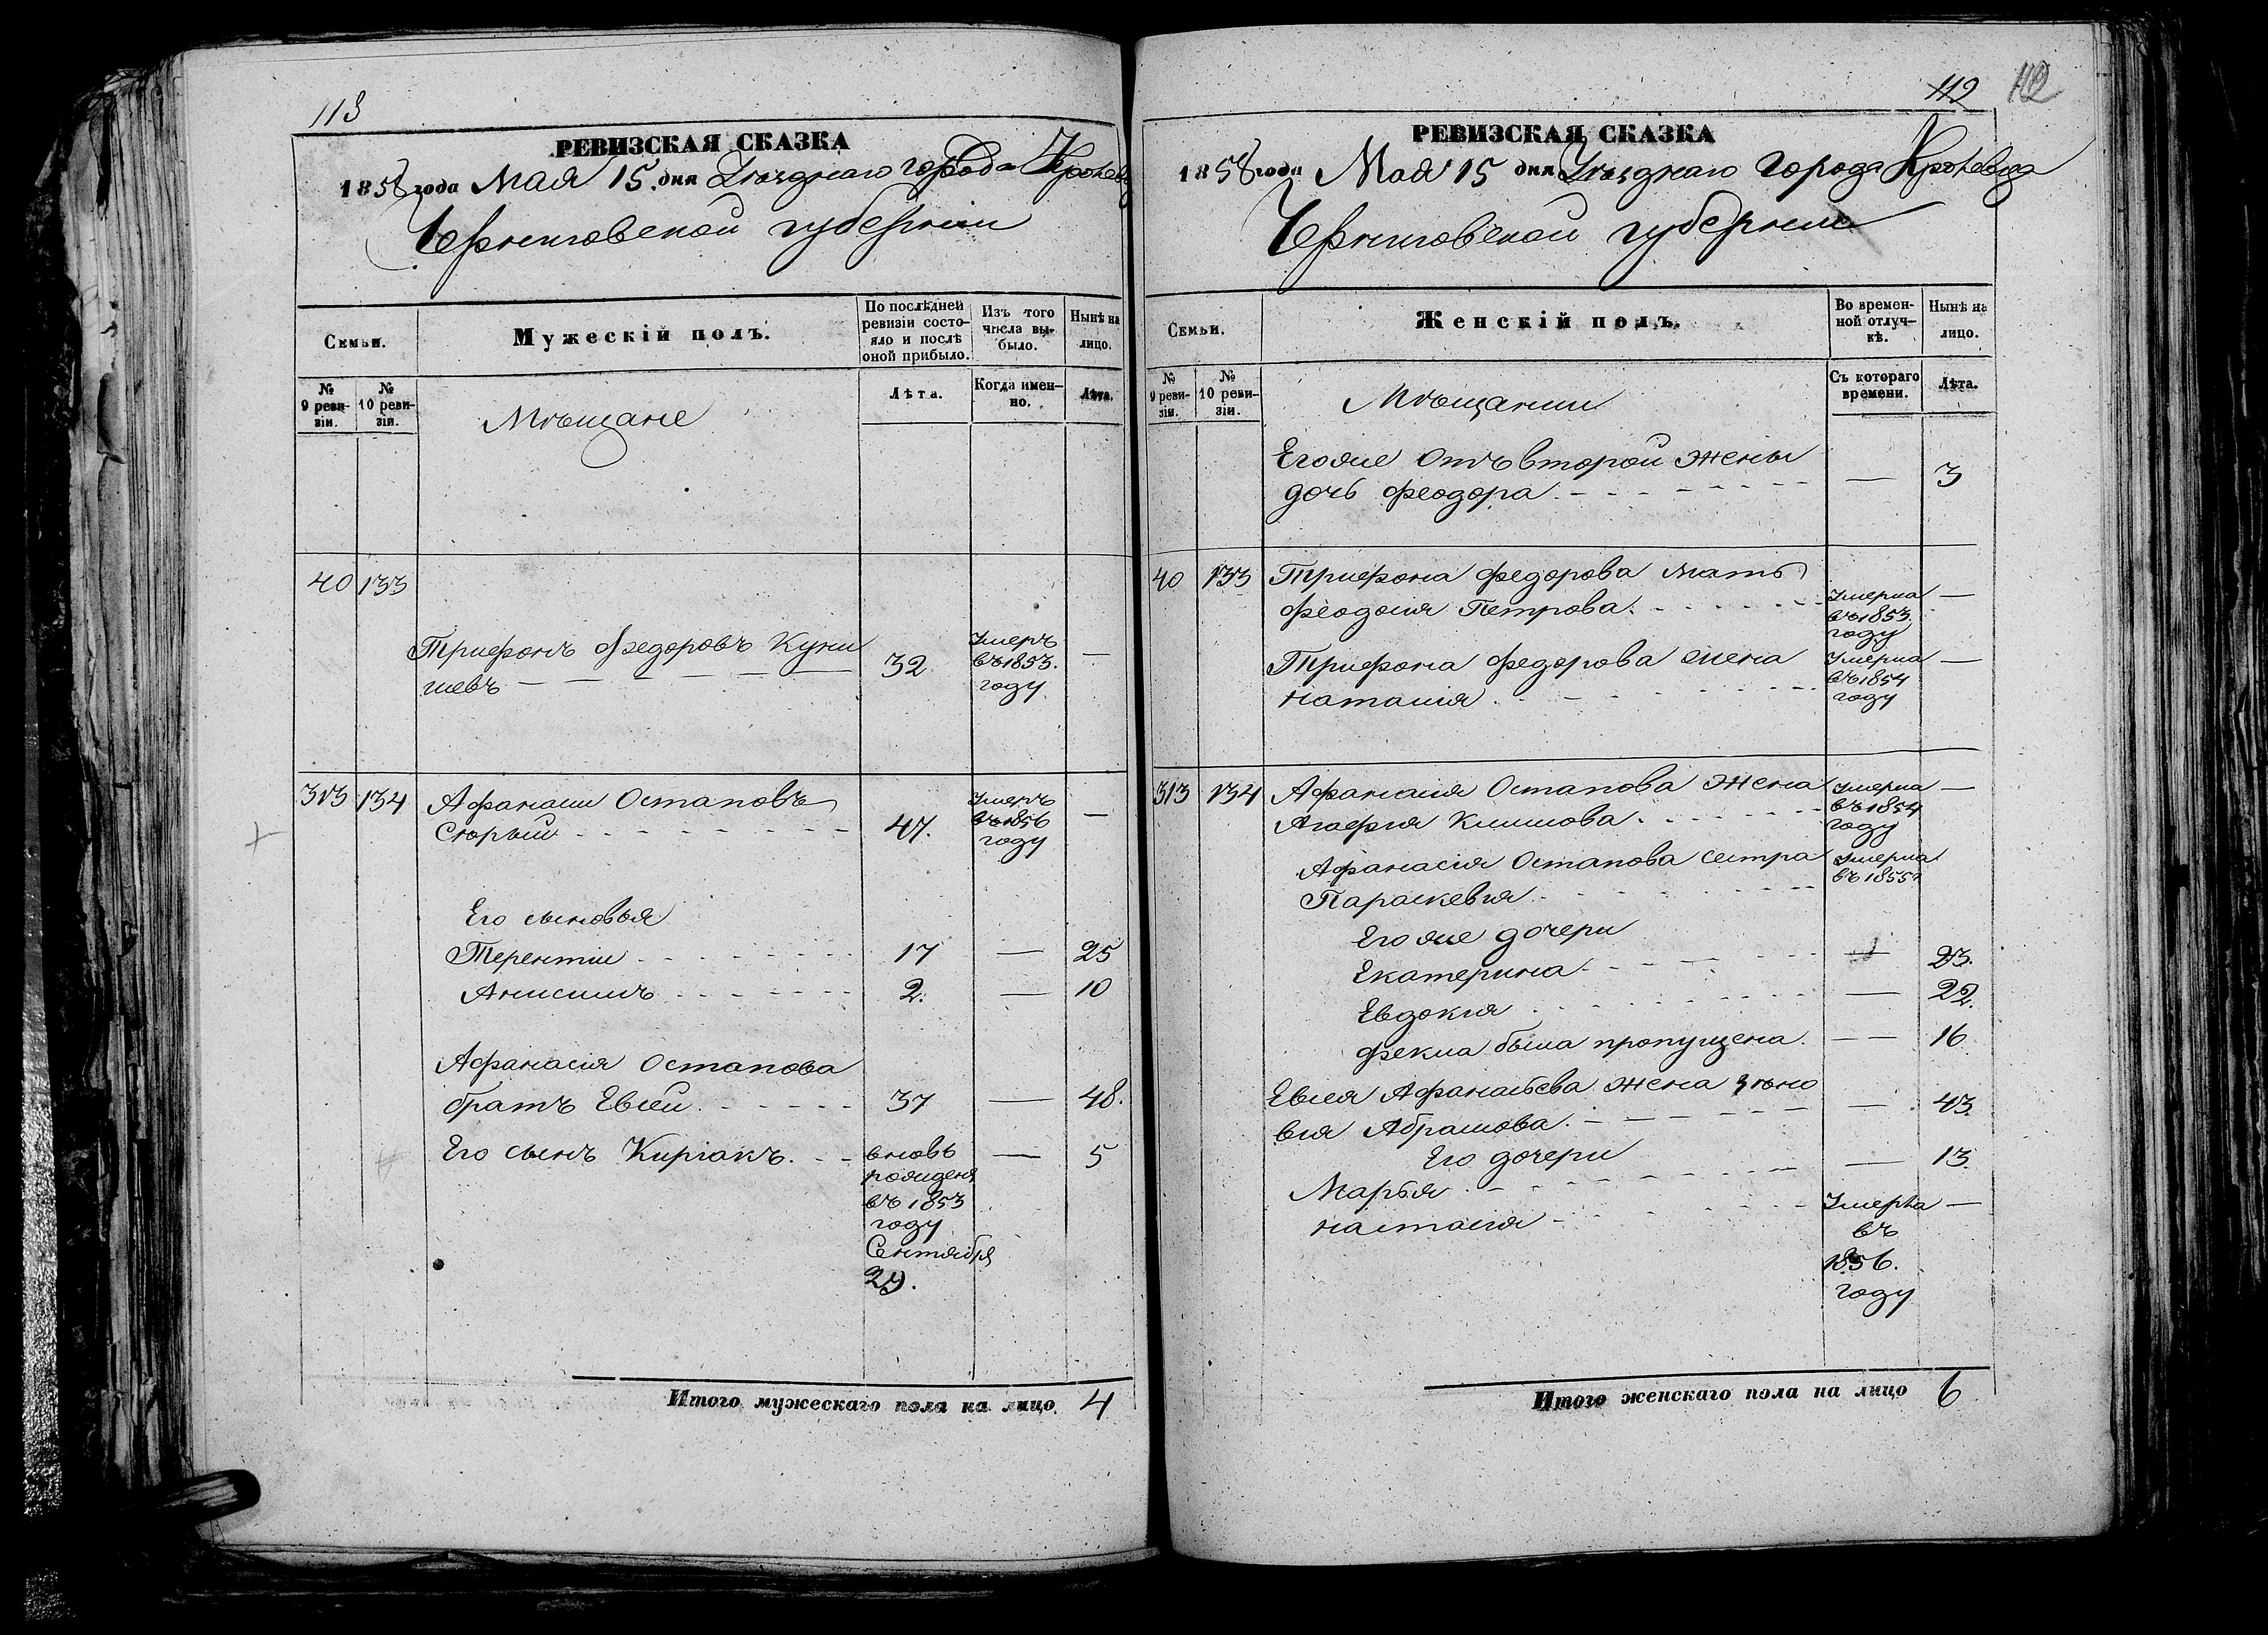 113
РЕВИЗСКАЯ СКАЗКА
1858 года Мая 15 дня Уѣзднаго города Кролевц
Черниговской губерніи
Семьи.
Мужескій полъ.
По послѣдней ревизіи состояло и послѣ оной прибыло.
Изъ того числа выбыло.
Нынѣ на лицо.
№ 9 ревизіи.
№ 10 ревизіи.
Лѣта.
Когда именно.
Лѣта.
Мѣщане
40 133
Трифонъ Федоровъ Куни
шевъ
32
Умеръ
въ 1853.
году
—
313 134
Афанасий Остаповъ
Скорый
47.
Умеръ
въ 1856
году
—
Его сыновья
Терентий 17 — 25
Анисимъ 2. — 10
Афанасія Остапова
братъ Евсей 37 — 48.
Его сынъ Киріакъ. — 5
вновь
рожденъ
въ 1853
году
Сентября
29.
Итого мужескаго пола на лицо 4
112 112
РЕВИЗСКАЯ СКАЗКА
1858 года Мая 15 дня Уѣзднаго города Кролевца
Черниговской губерніи
Семьи.
Женскій полъ.
Во временной отлучкѣ.
Нынѣ на лицо.
№ 9 ревизіи.
№ 10 ревизіи.
Съ котораго времени.
Лѣта.
Мѣщанки
Его же отъ второй жены
дочь Феодора — 3
40 133 Трифона Федорова мать
Феодосия Петрова.
Умерла
въ 1853.
году
—
Трифона Федорова жена
Наталия
Умерла
въ 1854
году
—
313 134 Афанасия Остапова жена
Агафия Климова.
Умерла
въ 1854
году
—
Афанасия Остапова сестра
Параскевия
Умерла
въ 1855
Его же дочери
Екатерина — 23.
Евдокия — 22.
Фекла была пропущена. — 16
Евсея Афанасьева жена Зѣно
вия Абрамова. — 43.
Его дочери
Марья — 13.
Настасия
Умерла
въ
1856.
году
—
Итого женскаго пола на лицо 6